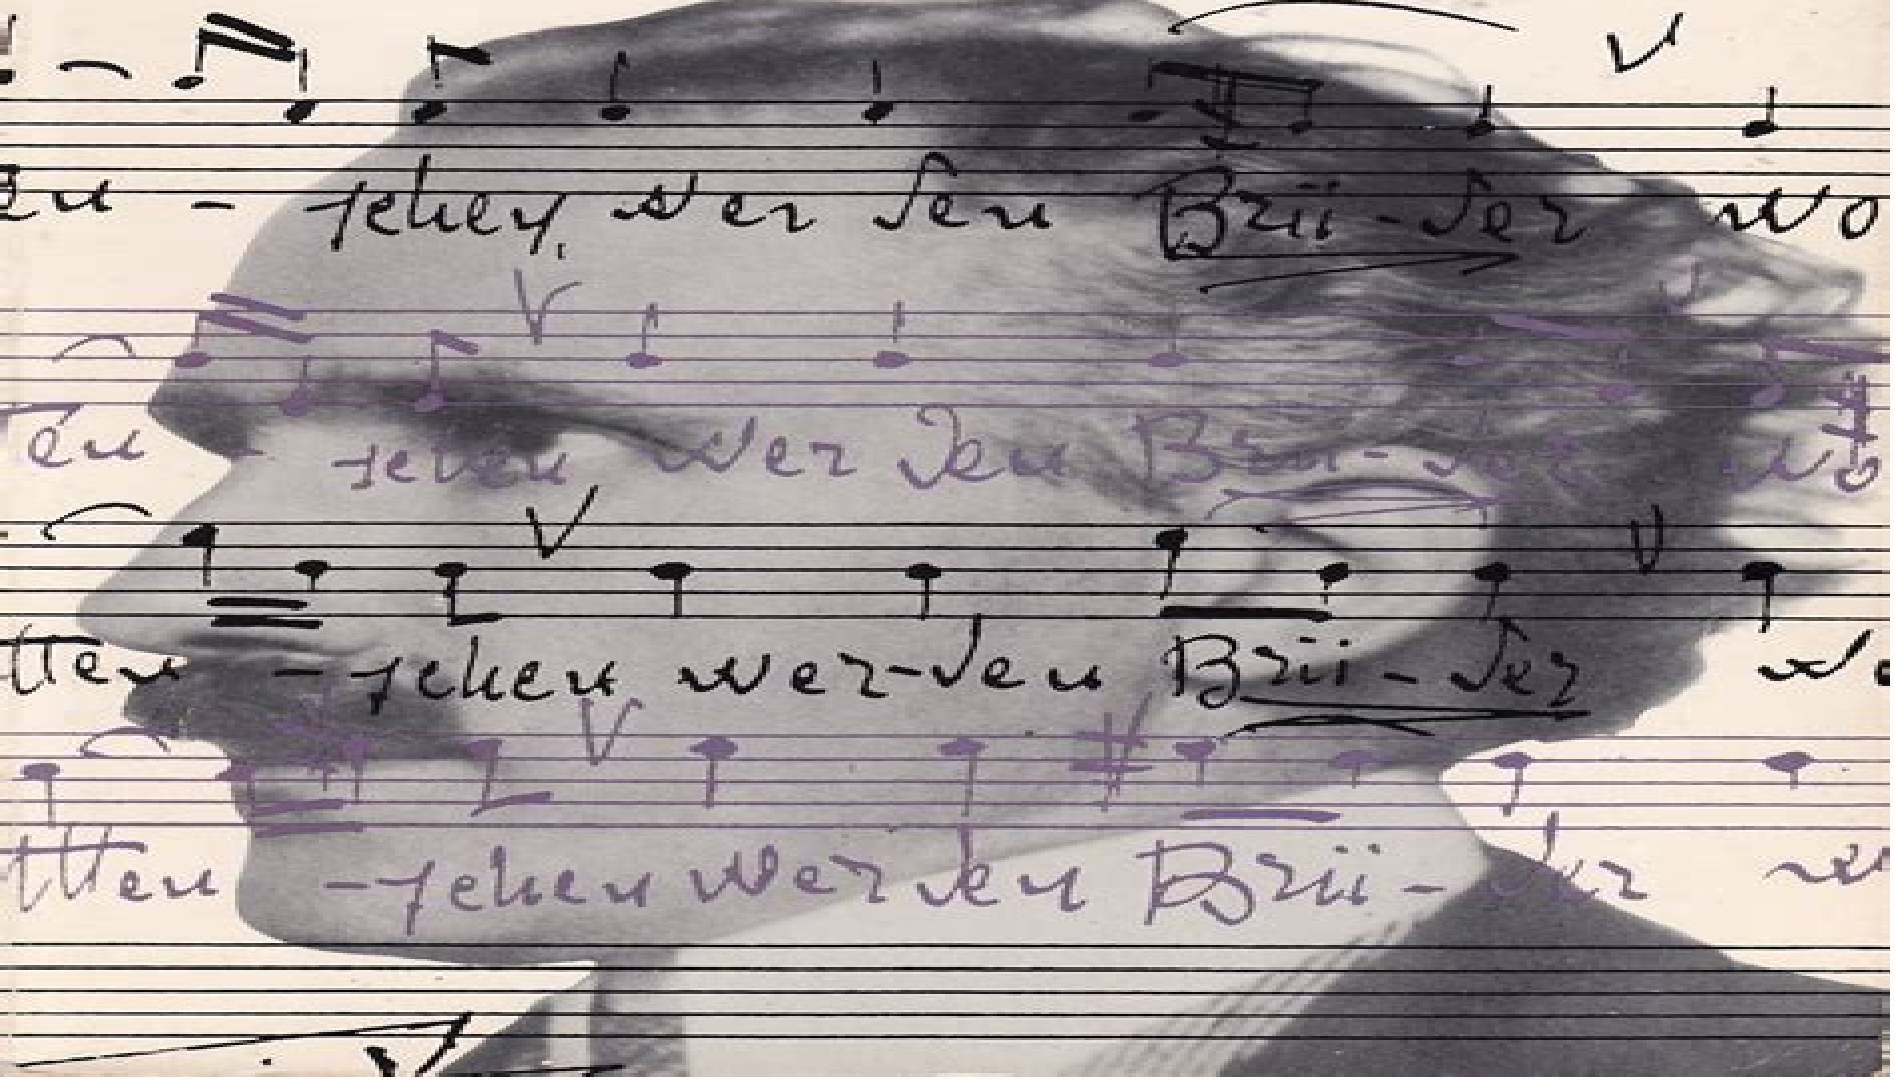 en - sehen, wer den Brü-der wo
ten - sehen wer den Brü-der wo
tten - sehen wer-den Brü-der we
tten - sehen wer den Brü-der